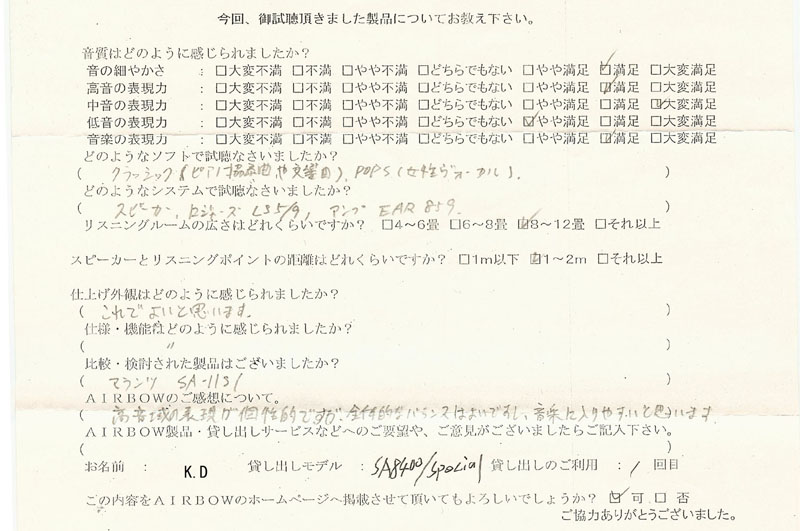 今回、御試聴頂きました製品についてお教え下さい。
音質はどのように感じられましたか？
音の細やかさ ：□大変不満 □不満 □やや不満 □どちらでもない □やや満足 ☑満足 □大変満足
高音の表現力 ：□大変不満 □不満 □やや不満 □どちらでもない □やや満足 ☑満足 □大変満足
中音の表現力 ：□大変不満 □不満 □やや不満 □どちらでもない □やや満足 □満足 ☑大変満足
低音の表現力 ：□大変不満 □不満 □やや不満 □どちらでもない ☑やや満足 □満足 □大変満足
音楽の表現力 ：□大変不満 □不満 □やや不満 □どちらでもない □やや満足 ☑満足 □大変満足
どのようなソフトで試聴なさいましたか？
( クラッシック (ピアノ協奏曲や交響曲), POPS (女性ヴォーカル). )
どのようなシステムで試聴なさいましたか？
( スピーカー, ロジャーズ LS5/9, アンプ EAR 859. )
リスニングルームの広さはどれくらいですか？ □4～6畳 □6～8畳 ☑8～12畳 □それ以上
スピーカーとリスニングポイントの距離はどれくらいですか？ □1m以下 ☑1～2m □それ以上
仕上げ外観はどのように感じられましたか？
( これでよいと思います. )
仕様・機能はどのように感じられましたか？
( 〃 )
比較・検討された製品はございましたか？
( マランツ SA-11S1 )
ＡＩＲＢＯＷのご感想について。
( 高音域の表現が個性的ですが、全体的なバランスはよいですし、音楽に入りやすいと思います. )
ＡＩＲＢＯＷ製品・貸し出しサービスなどへのご要望や、ご意見がございましたらご記入下さい。
( )
お名前 ： K.D 貸し出しモデル ：SA8400/Special 貸し出しのご利用 ：1 回目
この内容をＡＩＲＢＯＷのホームページへ掲載させて頂いてもよろしいでしょうか？ ☑可 □否
ご協力ありがとうございました。